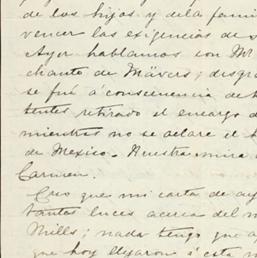 de los hijos y de la fami
vencer las exigencias de s
Ayer hablamos con Mr
chanto de Mavers; desgra
se fué á consecuencia de h
tentes retirado el encargo d
mientras no se aclare el h
de Mexico. Nuestra mira
Carmen.
Creo que mi carta de ay
tantas luces acerca del n
Mills; nada tengo que a
que hoy llegaron á esta